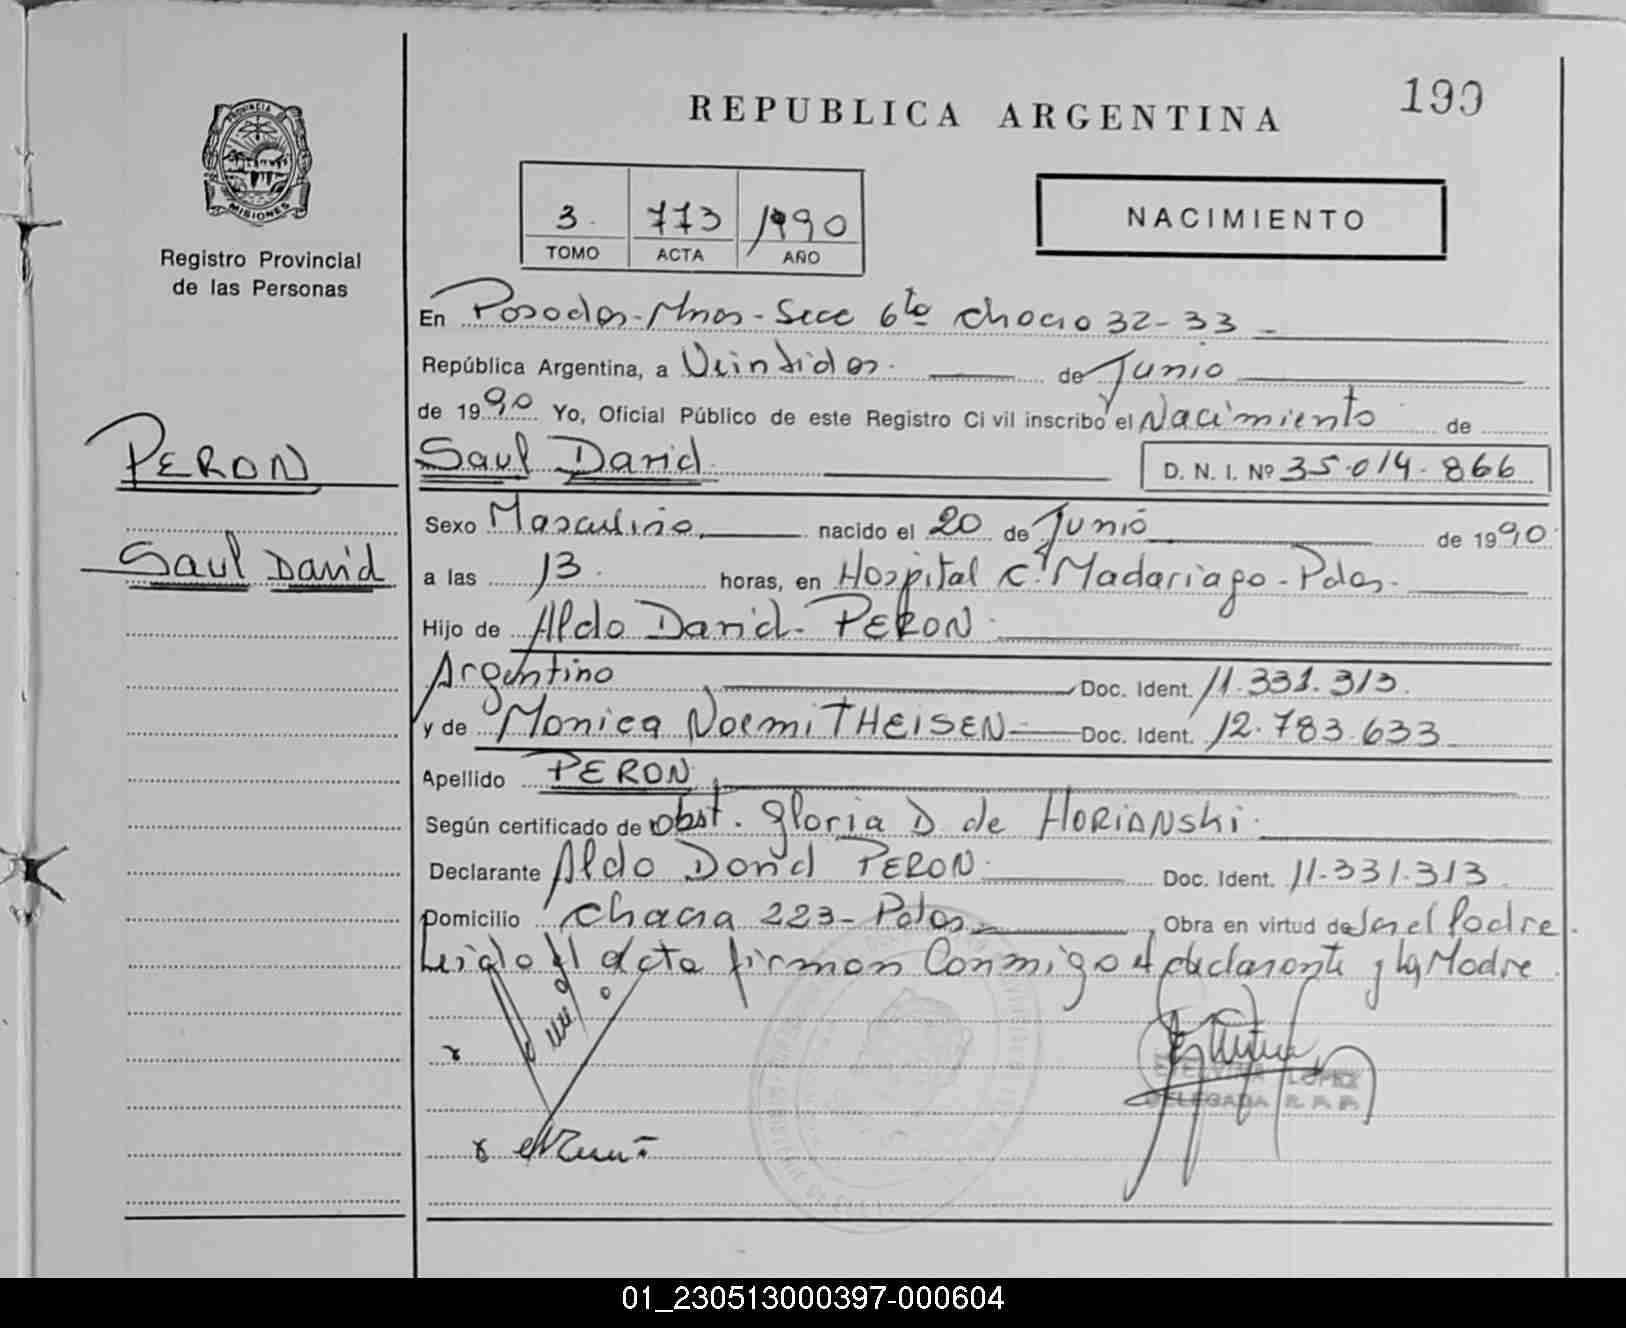 199
REPUBLICA ARGENTINA
PROVINCIA DE
MISIONES
Registro Provincial
de las Personas
3. 773 1990
TOMO ACTA AÑO
NACIMIENTO
En Posadas-Mnes-Secc 6ta chacra 32-33
República Argentina, a Veintidos. de Junio
de 1990 Yo, Oficial Público de este Registro Civil inscribo el Nacimiento de
PERON
Saul David.
D. N. I. Nº 35.014.866
Sexo Masculino nacido el 20 de Junio de 1990
Saul David
a las 13. horas, en Hospital c. Madariaga-Pdas.
Hijo de Aldo David. PERON
Argentino Doc. Ident. 11.331.313.
y de Monica Noemi THEISEN Doc. Ident. 12.783.633
Apellido PERON
Según certificado de obst. Gloria D de HORIANski
Declarante Aldo David PERON Doc. Ident. 11.331.313
Domicilio chacra 223-Pdas Obra en virtud de Ser el Padre.
Leida el acta firman Conmigo el declarante y la Madre
LOPEZ
DELEGADA
01_230513000397-000604